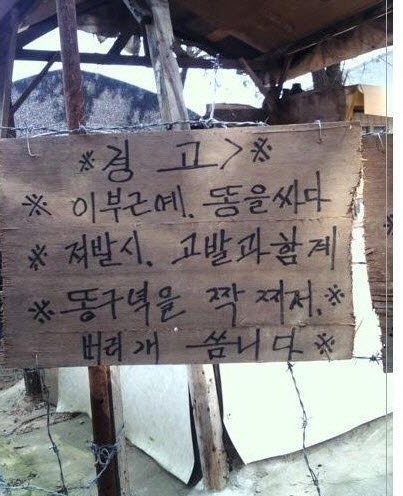 ※경 고>※
※ 이부근에. 똥을싸다
※ 저발시. 고발과함게
※ 똥구녁을 짝 찌저.※
버리개 씀니다 ※